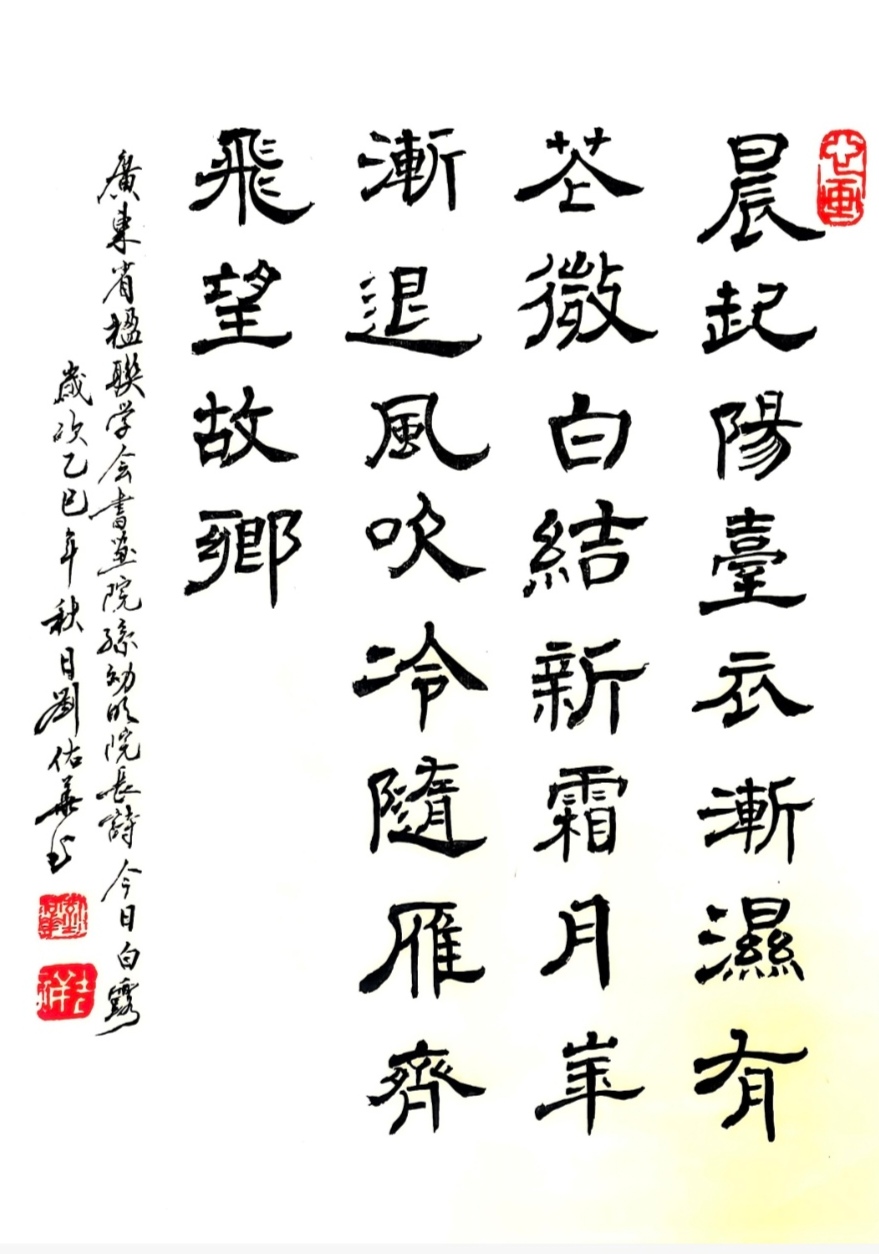 晨起陽臺衣漸濕有
苍微白結新霜月華
漸退風吹冷隨雁齊
飛望故鄉
廣東省楹聯学会書画院孫幼明院長詩今日白露
歲次乙巳年秋日劉佑華书